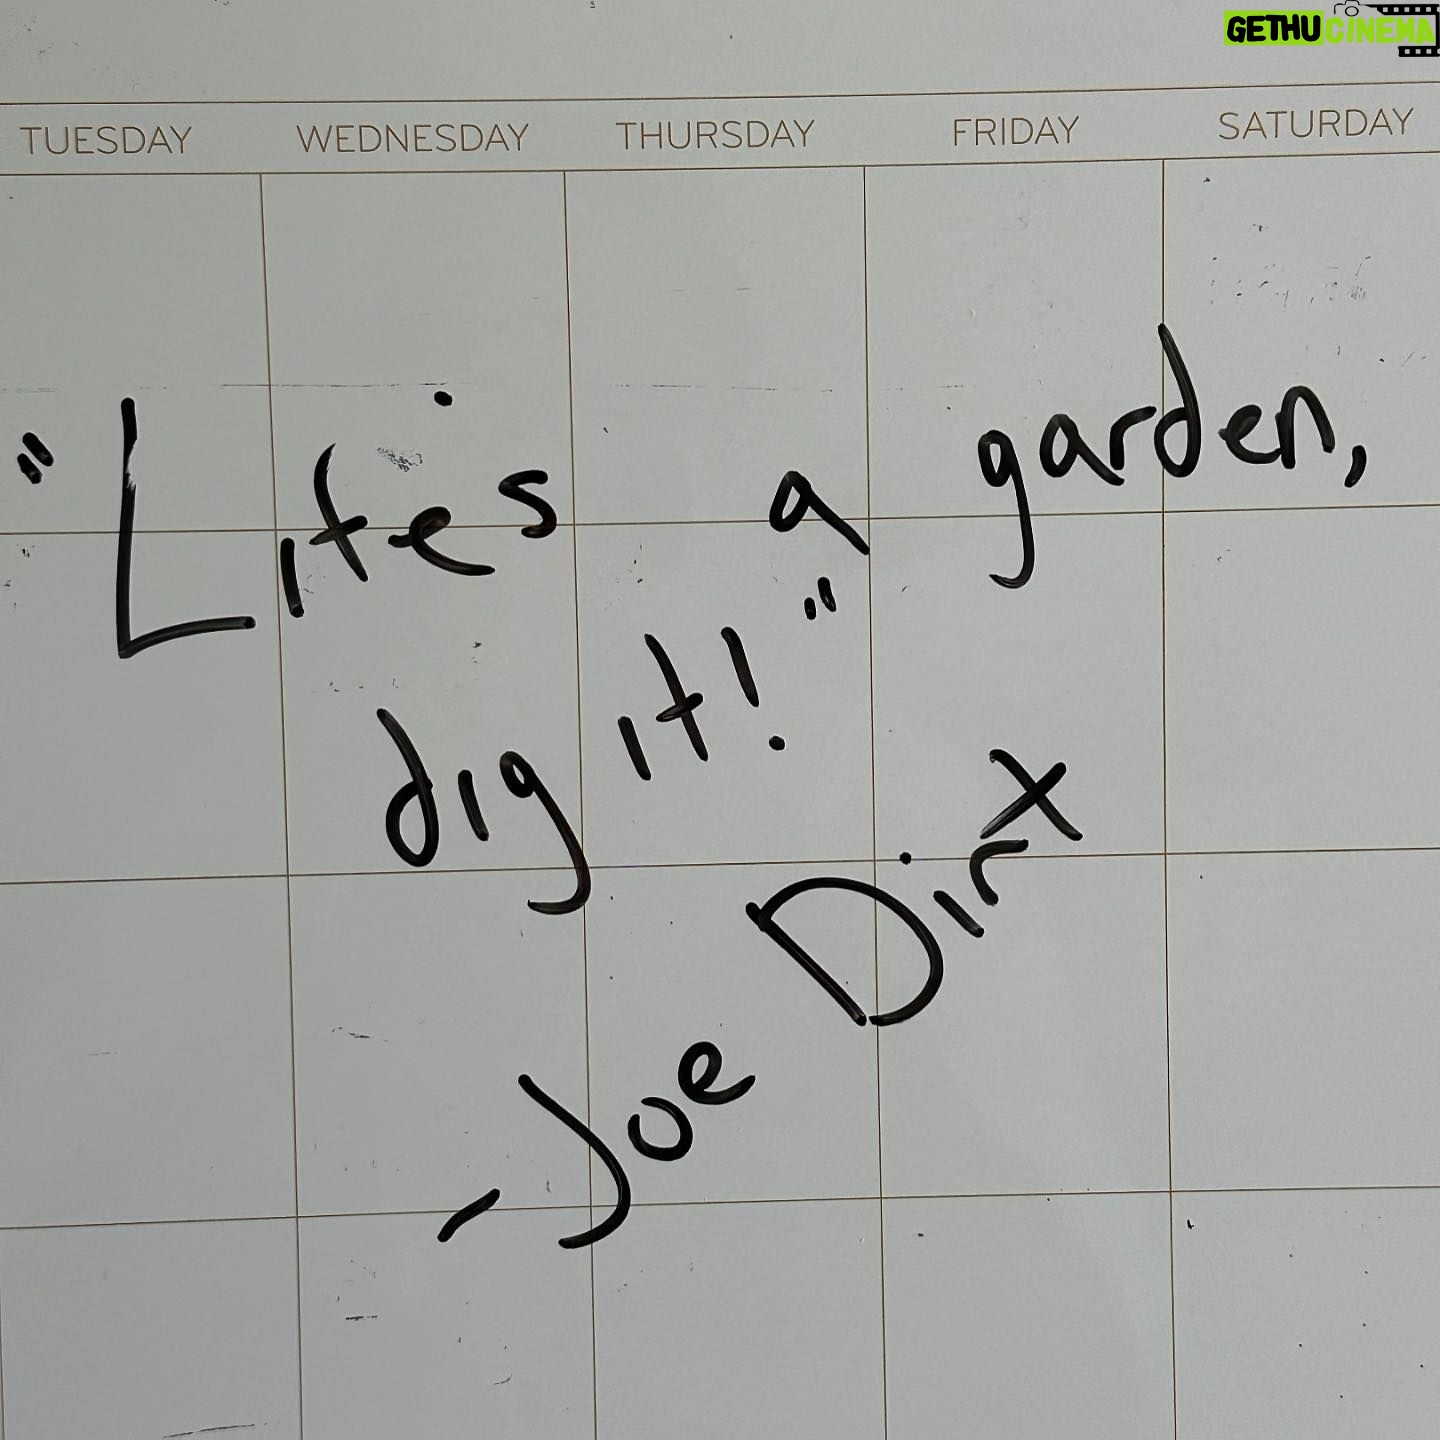 GETHUCINEMA
TUESDAY WEDNESDAY THURSDAY FRIDAY SATURDAY
"Life's a garden,
dig it!"
-Joe Dirt